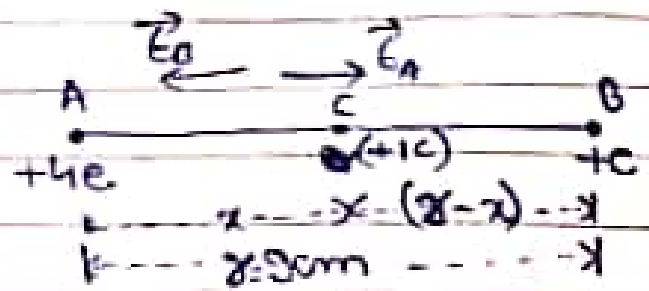 E⃗B E⃗A
A C B
+4e (+1C) +e
x (r-x)
r=9cm